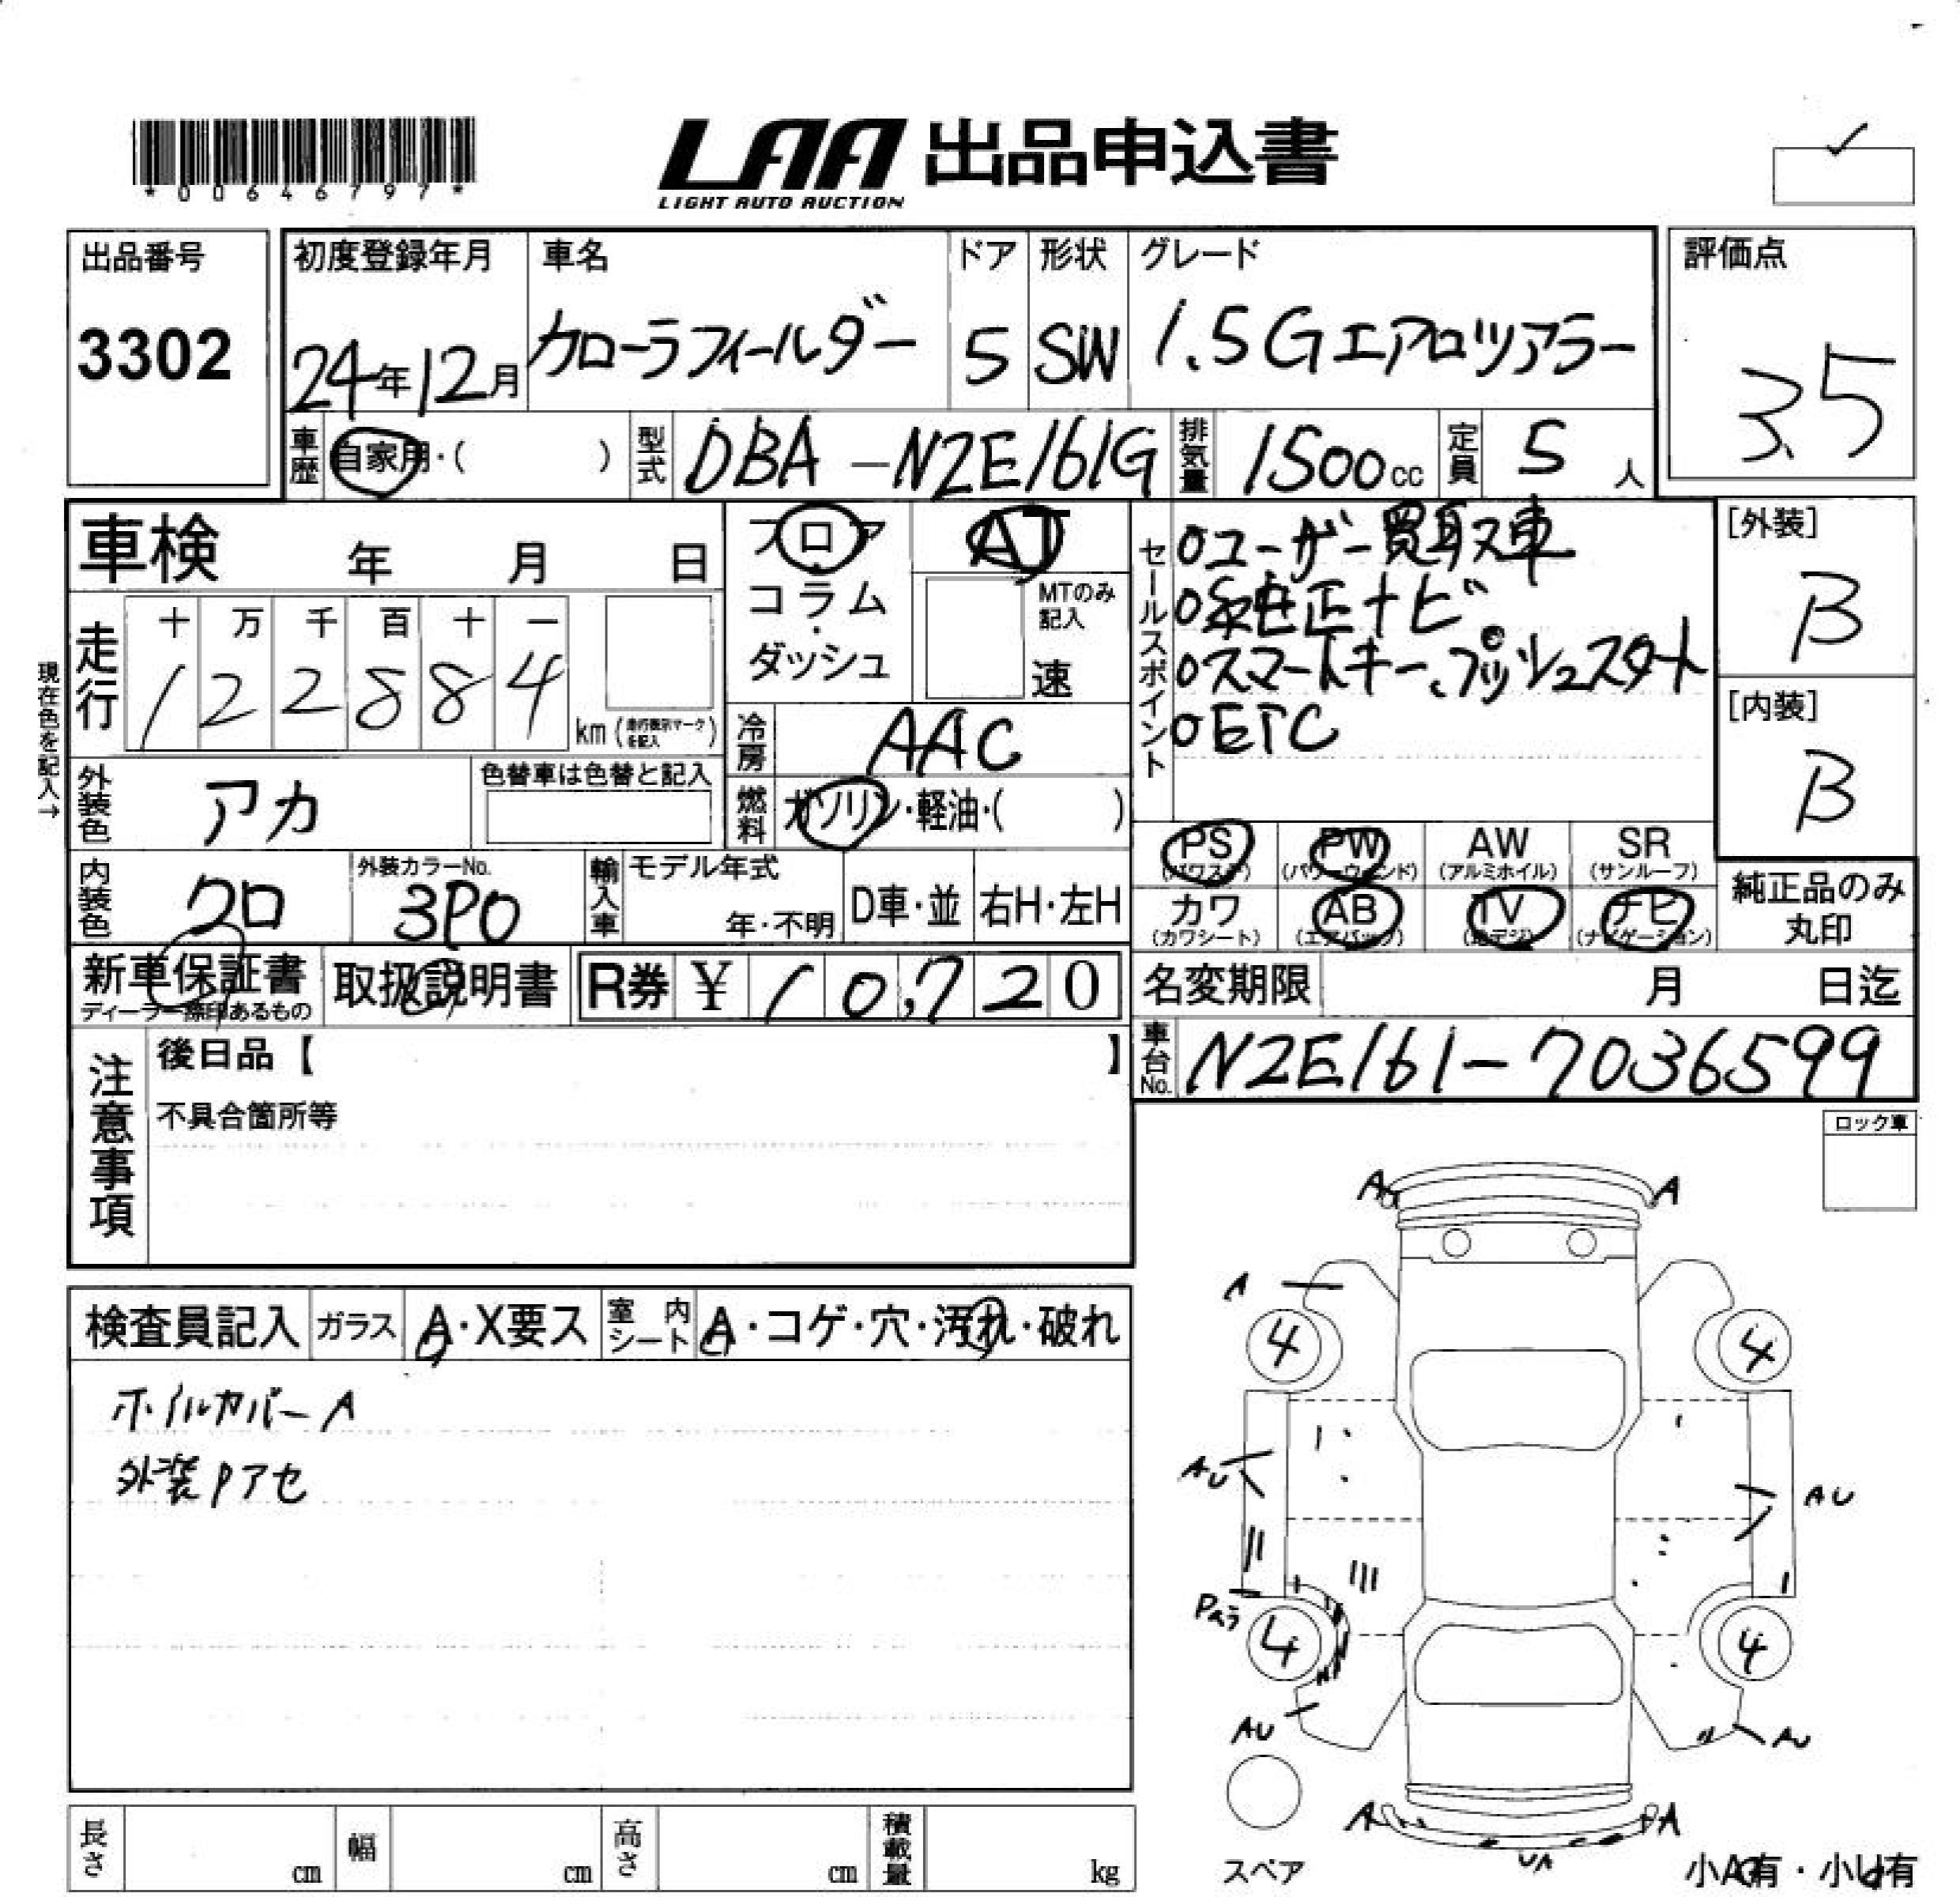 *00646797*
LAA 出品申込書
LIGHT AUTO AUCTION
出品番号
3302
初度登録年月
24年12月
車名
カローラフィールダー
ドア
5
形状
SW
グレード
1.5Gエアロツアラー
評価点
3.5
車歴
自家用・(　　)
型式
DBA-NZE161G
排気量
1500cc
定員
5人
車検　年　月　日
フロア・コラム・ダッシュ
AT
MTのみ記入
速
セールスポイント
○ユーザー買取車
○純正ナビ
○スマートキー、プッシュスタート
○ETC
[外装]
B
[内装]
B
現在色を記入→
走行
十 万 千 百 十 一
1 2 2 8 8 4
km(走行機表示マークを記入)
冷房
AAC
外装色
アカ
色替車は色替と記入
燃料
ガソリン・軽油・(　　)
内装色
クロ
外装カラーNo.
3P0
輸入車
モデル年式
年・不明
D車・並
右H・左H
PS
(パワステ)
PW
(パワーウィンド)
AW
(アルミホイル)
SR
(サンルーフ)
カワ
(カワシート)
AB
(エアバック)
TV
(地デジ)
ナビ
(ナビゲーション)
純正品のみ丸印
新車保証書
ディーラー捺印あるもの
取扱説明書
R券 ¥ 10,720
名変期限　月　日迄
車台No.
NZE161-7036599
注意事項
後日品【　　】
不具合箇所等
ロック車
検査員記入
ガラス
A・X要ス
室内シート
A・コゲ・穴・汚れ・破れ
ホイルカバーA
外装Pアセ
A
A
A
4
4
AU
AU
4
4
AU
AU
A
A
スペア
小A有・小U有
長さ
cm
幅
cm
高さ
cm
積載量
kg